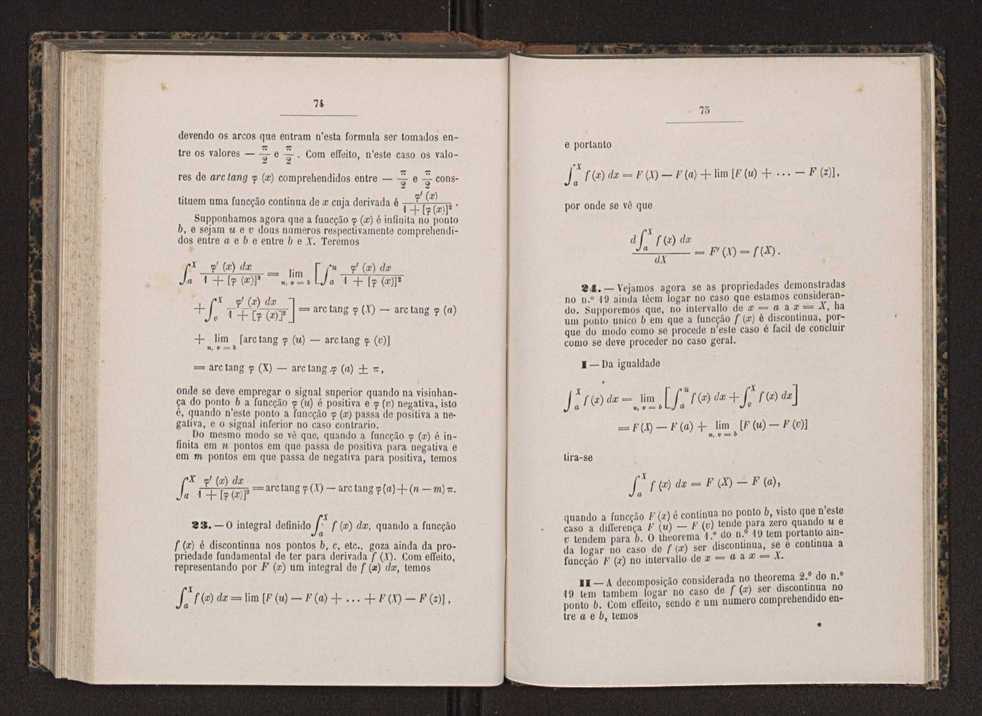 74
devendo os arcos que entram n'esta formula ser tomados en-
tre os valores — π/2 e π/2 . Com effeito, n'este caso os valo-
res de arc tang φ (x) comprehendidos entre — π/2 e π/2 cons-
tituem uma funcção continua de x cuja derivada é φ' (x) / 1 + [φ (x)]² .
Supponhamos agora que a funcção φ (x) é infinita no ponto
b, e sejam u e v dous numeros respectivamente comprehendi-
dos entre a e b e entre b e X. Teremos
∫_a^X φ' (x) dx / 1 + [φ (x)]² = lim_{u, v = b} [ ∫_a^u φ' (x) dx / 1 + [φ (x)]²
+ ∫_v^X φ' (x) dx / 1 + [φ (x)]² ] = arc tang φ (X) — arc tang φ (a)
+ lim_{u, v = b} [arc tang φ (u) — arc tang φ (v)]
= arc tang φ (X) — arc tang φ (a) ± π,
onde se deve empregar o signal superior quando na visinhan-
ça do ponto b a funcção φ (u) é positiva e φ (v) negativa, isto
é, quando n'este ponto a funcção φ (x) passa de positiva a ne-
gativa, e o signal inferior no caso contrario.
Do mesmo modo se vê que, quando a funcção φ (x) é in-
finita em n pontos em que passa de positiva para negativa e
em m pontos em que passa de negativa para positiva, temos
∫_a^X φ' (x) dx / 1 + [φ (x)]² = arc tang φ (X) — arc tang φ (a) + (n — m) π.
23. — O integral definido ∫_a^X f (x) dx, quando a funcção
f (x) é discontinua nos pontos b, c, etc., goza ainda da pro-
priedade fundamental de ter para derivada f (X). Com effeito,
representando por F (x) um integral de f (x) dx, temos
∫_a^X f (x) dx = lim [F (u) — F (a) + ... + F (X) — F (z)] ,
75
e portanto
∫_a^X f (x) dx = F (X) — F (a) + lim [F (u) + ... — F (z)],
por onde se vê que
d ∫_a^X f (x) dx / dX = F' (X) = f (X).
24. — Vejamos agora se as propriedades demonstradas
no n.º 19 ainda têem logar no caso que estamos consideran-
do. Supporemos que, no intervallo de x = a a x = X, ha
um ponto unico b em que a funcção f (x) é discontinua, por-
que do modo como se procede n'este caso é facil de concluir
como se deve proceder no caso geral.
I — Da igualdade
∫_a^X f (x) dx = lim_{u, v = b} [ ∫_a^u f (x) dx + ∫_v^X f (x) dx ]
= F (X) — F (a) + lim_{u, v = b} [F (u) — F (v)]
tira-se
∫_a^X f (x) dx = F (X) — F (a),
quando a funcção F (x) é continua no ponto b, visto que n'este
caso a differença F (u) — F (v) tende para zero quando u e
v tendem para b. O theorema 1.º do n.º 19 tem portanto ain-
da logar no caso de f (x) ser discontinua, se é continua a
funcção F (x) no intervallo de x = a a x = X.
II — A decomposição considerada no theorema 2.º do n.º
19 tem tambem logar no caso de f (x) ser discontinua no
ponto b. Com effeito, sendo c um numero comprehendido en-
tre a e b, temos